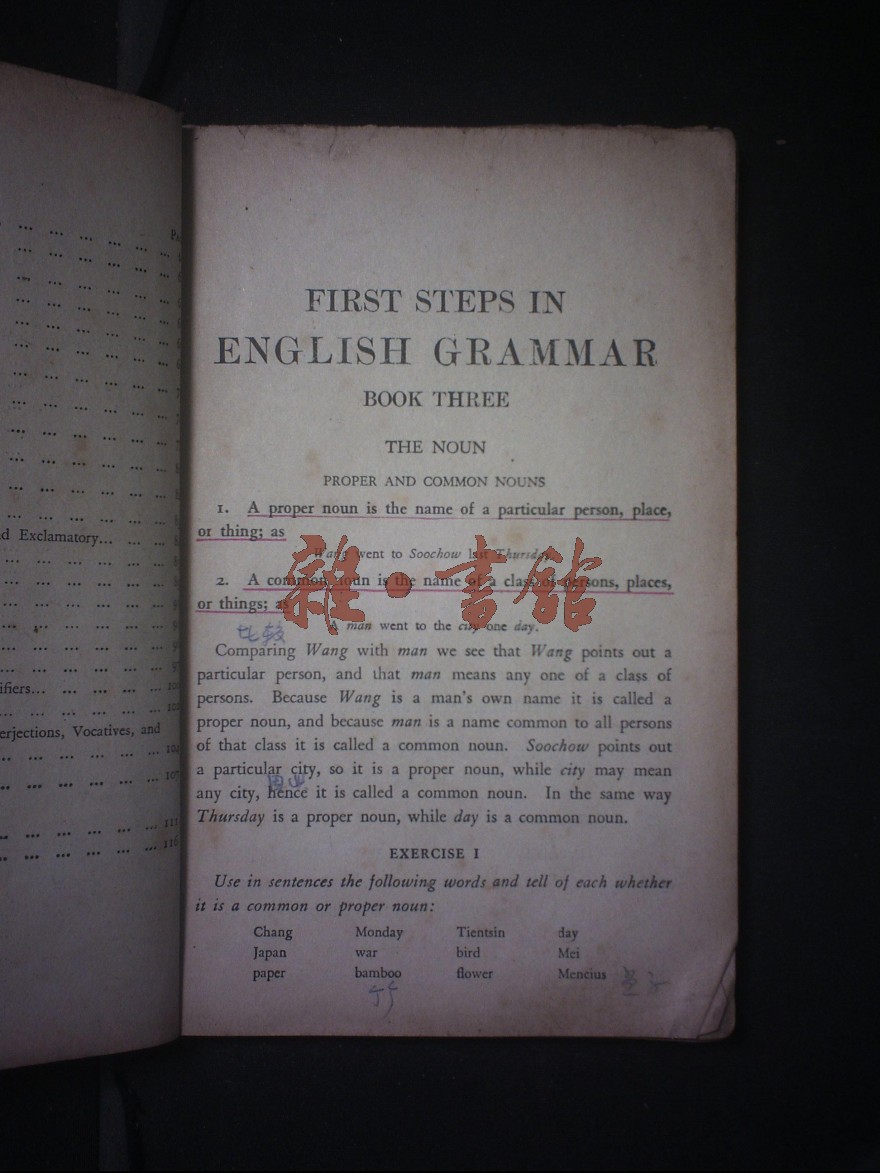 d Exclamatory...
ifiers...
erjections, Vocatives, and
107
111
116
FIRST STEPS IN
ENGLISH GRAMMAR
BOOK THREE
THE NOUN
PROPER AND COMMON NOUNS
1. A proper noun is the name of a particular person, place,
or thing; as
Wang went to Soochow last Thursday.
2. A common noun is the name of a class of persons, places,
or things; as
雜·書館
A man went to the city one day.
比较
Comparing Wang with man we see that Wang points out a
particular person, and that man means any one of a class of
persons. Because Wang is a man's own name it is called a
proper noun, and because man is a name common to all persons
of that class it is called a common noun. Soochow points out
a particular city, so it is a proper noun, while city may mean
any city, hence it is called a common noun. In the same way
Thursday is a proper noun, while day is a common noun.
EXERCISE I
Use in sentences the following words and tell of each whether
it is a common or proper noun:
Chang Monday Tientsin day
Japan war bird Mei
paper bamboo flower Mencius 孟子
竹